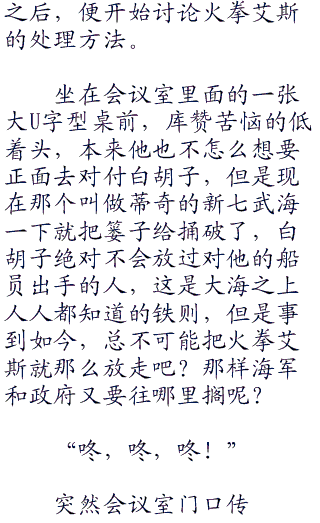 之后，便开始讨论火拳艾斯
的处理方法。
坐在会议室里面的一张
大U字型桌前，库赞苦恼的低
着头，本来他也不怎么想要
正面去对付白胡子，但是现
在那个叫做蒂奇的新七武海
一下就把篓子给捅破了，白
胡子绝对不会放过对他的船
员出手的人，这是大海之上
人人都知道的铁则，但是事
到如今，总不可能把火拳艾
斯就那么放走吧？那样海军
和政府又要往哪里搁呢？
“咚，咚，咚！”
突然会议室门口传